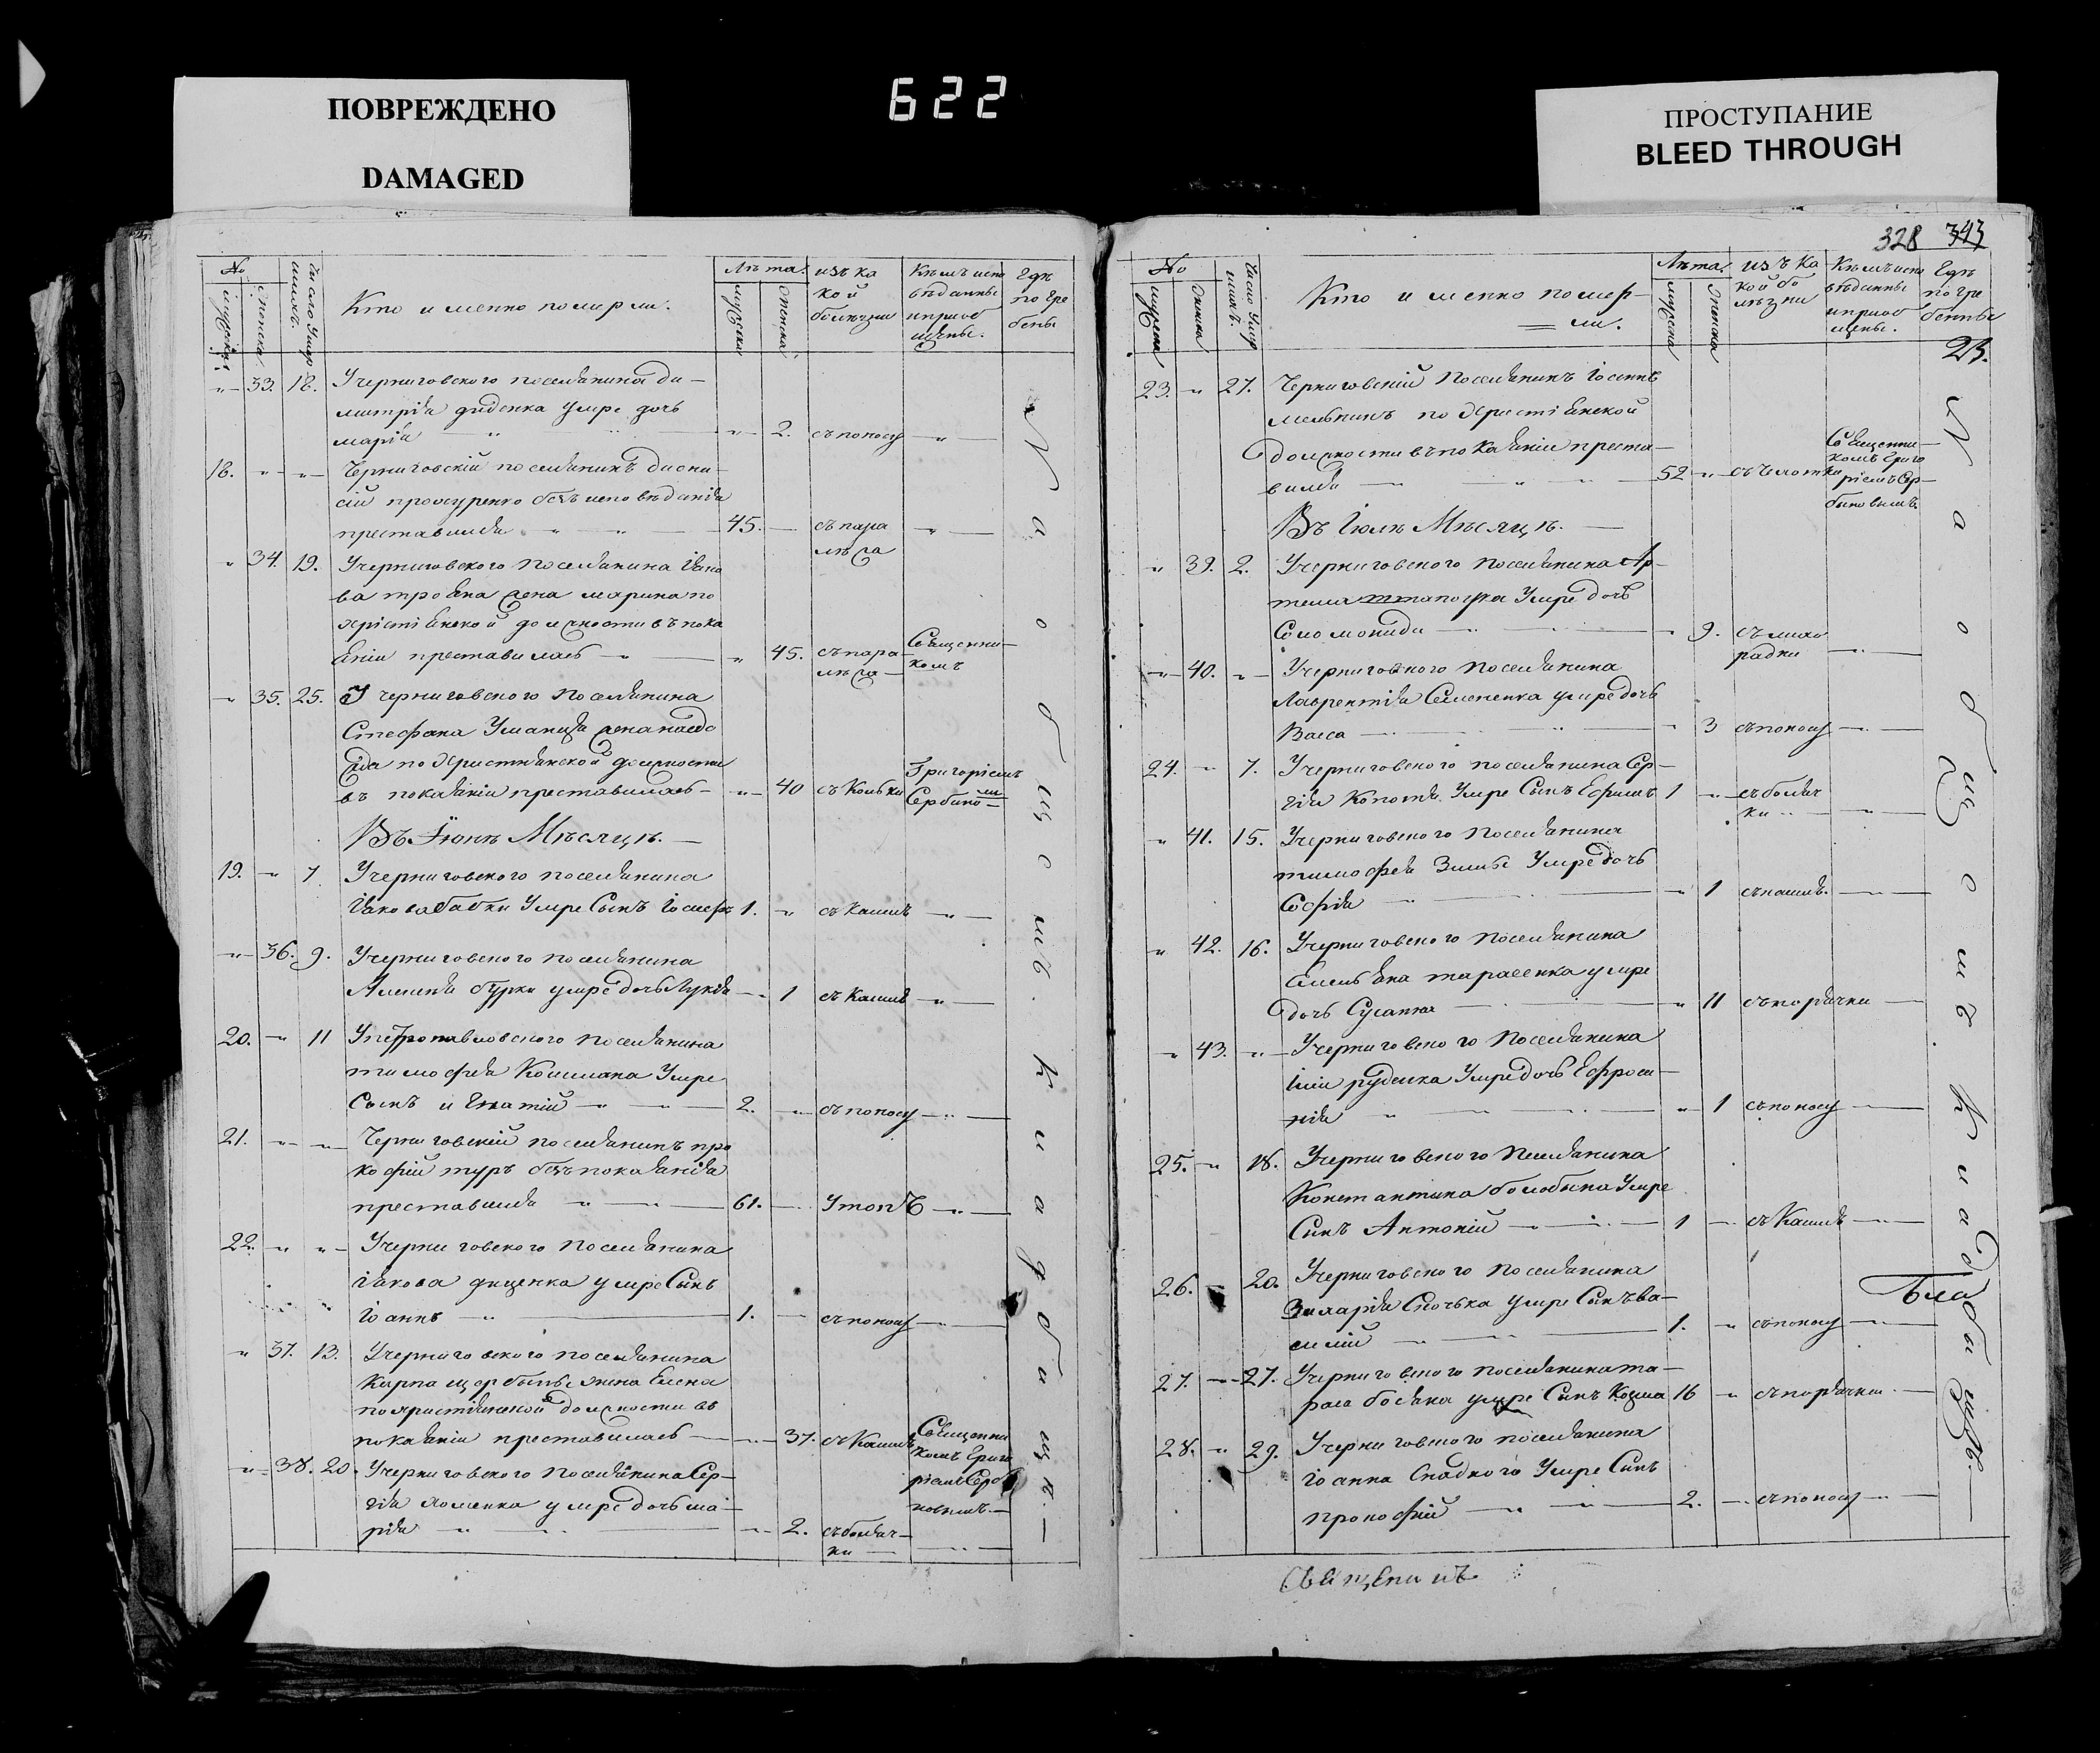 ПОВРЕЖДЕНО
DAMAGED
622
ПРОСТУПАНИЕ
BLEED THROUGH
328 343
№
Число умер
шихъ.
Кто именно помирли.
Лѣта.
изъ ка
кой
болѣзни
Кѣмъ испо
вѣданы
и приоб
щены.
Гдѣ
погре
бены
33. 18. У черниговского поселянина ди-
митрія диденка умре дочь
марія 2. съ поносу
18. Черниговскій поселянинъ диони-
сій прокуренко безъ исповѣданія
преставился 45. съ пара
лѣча
34. 19. У черниговского поселянина Іана
марина по
христіянской должности въ пока
яніи преставилась 45. съ пара-
лѣча
Священни-
комъ
35. 25. У черниговского поселянина
Стефана Уманця жена
по христіянской должности
въ покаяніи преставилась 40 съ
Григоріемъ
Въ Іюнѣ Мѣсяцѣ.
19. 7 У черниговского поселянина
Іакова бабки умре сынъ Іосифъ 1. съ кашлѣ
36. 9. У черниговского поселянина
бурки умре дочь Лукія 1 съ кашлѣ
20. 11 У петропавловского поселянина
тимофія Кошмана умре
сынъ игнатій 2. съ поносу
21. Черниговскій поселянинъ про
кофій туръ безъ покаянія
преставился 61. утопъ
22. У черниговского поселянина
Іакова диценка умре сынъ
Іоаннъ 1. съ поносу
37. 13. У черниговского поселянина
Карпа щербины жена Елена
по христіянской должности въ
покаяніи преставилась 37. съ кашлѣ
Священни
комъ Григо
ріемъ Серби
новымъ.
38. 20. У черниговского поселянина Сер-
гія хоменка умре дочь ма-
рія 2. съ боляч-
ки
На общомъ кладбищѣ.
№
Число умер
шихъ.
Кто именно помер-
ли.
Лѣта.
изъ ка
кой бо
лѣзни
Кѣмъ испо
вѣданы
и приоб
щены.
Гдѣ
погре
бенны
23.
23. 27. Черниговскій поселянинъ Іоаннъ
мельникъ по христіянской
должности въ покаяніи преста-
вился 52 съ чехотки
Священни-
комъ Григо
ріемъ Сер-
биновымъ.
Въ Іюлѣ Мѣсяцѣ.
39. 2. У черниговского поселянина Ар-
тема умре дочь
Соломонида 9. съ лихо
радки
40. У черниговского поселянина
Лаврентія Семененка умре дочь
Васса 3 съ поносу
24. 7. У черниговского поселянина Сер-
гія Копотя умре сынъ Ефимъ 1 съ боляч
ки
41. 15. У черниговского поселянина
тимофея Зимы умре дочь
Софія 1 съ кашлѣ
42. 16. У черниговского поселянина
Емельяна тарасенка умре
дочь Сусанна 11 съ горячки
43. У черниговского поселянина
руденка умре дочь Ефроси-
нія 1 съ поносу
25. 18. У черниговского поселянина
Константина болобына умре
сынъ Антоній 1 съ кашлѣ
26. 20. У черниговского поселянина
умре сынъ ва-
силій 1. съ поносу
27. 27. У черниговского поселянина та-
раса босяка умре сынъ Козма 16 съ горячки
28. 29. У черниговского поселянина
Іоанна Гладкого умре сынъ
прокофій 2. съ поносу
На общомъ кладбищѣ.
Бла
Священикъ